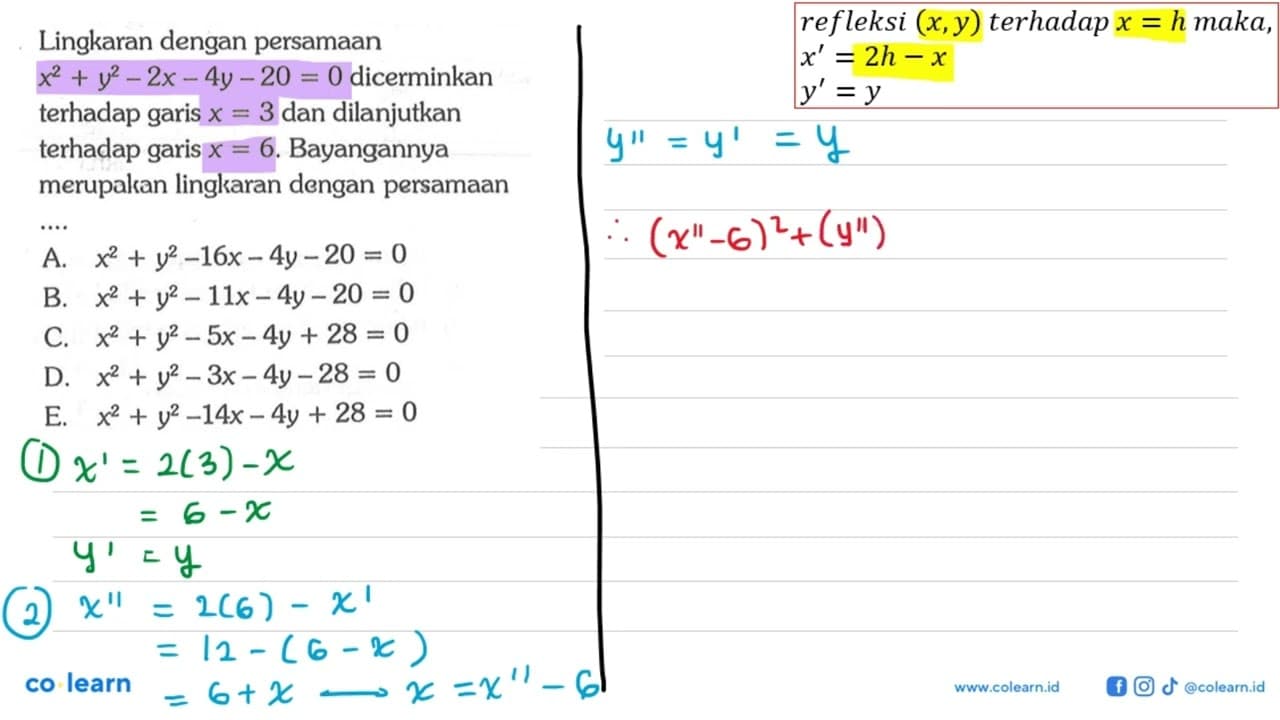 Lingkaran dengan persamaan
x² + y² – 2x – 4y – 20 = 0 dicerminkan
terhadap garis x = 3 dan dilanjutkan
terhadap garis x = 6. Bayangannya
merupakan lingkaran dengan persamaan
....
A. x² + y² –16x – 4y – 20 = 0
B. x² + y² – 11x – 4y – 20 = 0
C. x² + y² – 5x – 4y + 28 = 0
D. x² + y² – 3x – 4y – 28 = 0
E. x² + y² –14x – 4y + 28 = 0
① x' = 2(3) - x
= 6 - x
y' = y
② x'' = 2(6) - x'
= 12 - (6 - x)
= 6 + x → x = x'' - 6
refleksi (x, y) terhadap x = h maka,
x' = 2h − x
y' = y
y'' = y' = y
∴ (x'' - 6)² + (y'')
co learn
www.colearn.id
@colearn.id